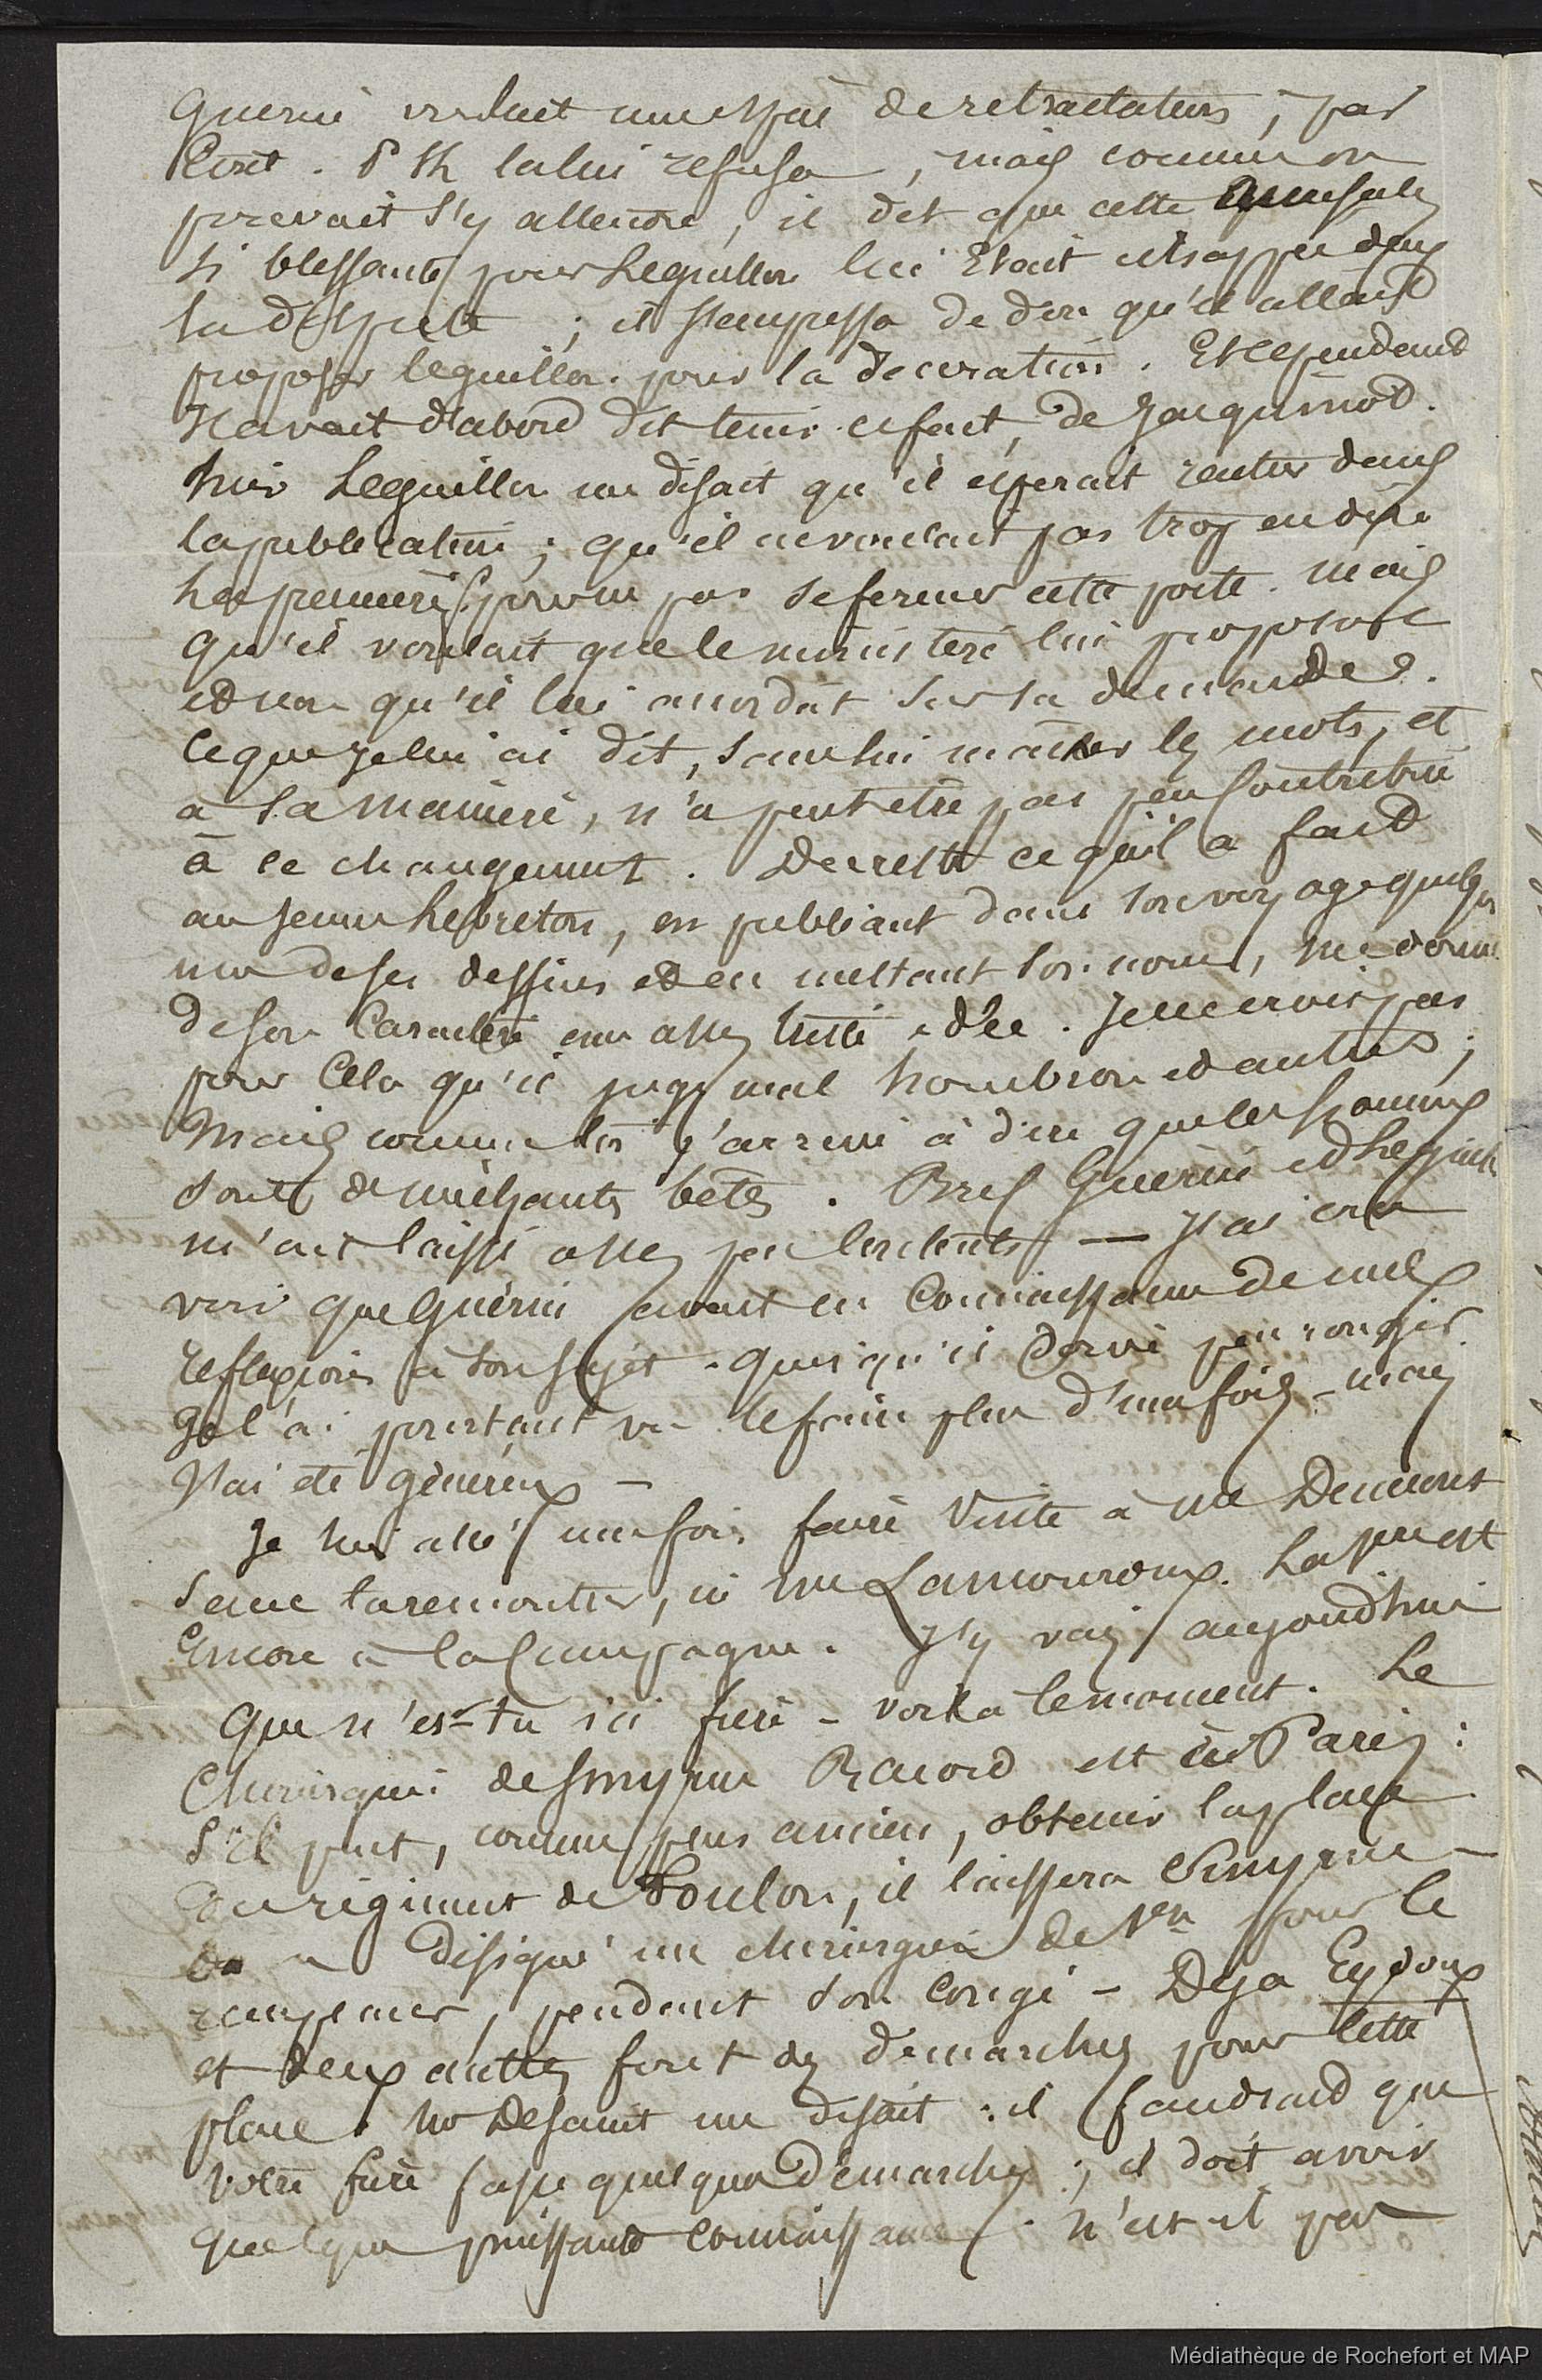 Guerin voulait une espèce de retractation, par
Ecrit. d'Th la lui refusa, mais comme on
pouvait s'y attendre, il dit que cette
si blessante pour Leguillou lui Etait echappée dans
la dispute ; il s'empressa de dire qu'il allait
proposer leguillou pour la decoration. Et cependant
Il avait d'abord dit tenir ce fait, de Jacquinot.
hier Leguillou me disait qu'il esperait rentrer dans
la publication ; qu'il ne voulait pas trop en dire
les premiers pour ne pas se fermer cette porte. mais
qu'il voulait que le ministère lui proposat
et non qu'il lui accordat sur sa demande.
Ce que je lui ai dit, sans lui mâcher les mots, et
à sa manière, n'a peut etre pas peu Contribué
à ce changement. Du reste ce qu'il a fait
au jeune Lebreton, en publiant dans son voyage quelques
uns de ses dessins et en mettant son nom, me donne
de son Caractère une assez triste idée. Je ne crois pas
pour Cela qu'il juge mal hombron et autres ;
Mais comme toi j'arrive à dire que les hommes
sont de méchantes bêtes. Bref Guérin et Leguillou
m'ont laissé assez peu Contents — J'ai cru
voir que Guérin avait eu Connaissance de mes
reflexions à son sujet. quoiqu'il doive peu rougir
Je l'ai pourtant vu le faire plus d'une fois - mais
J'ai été généreux —
Je suis allé une fois faire Visite à Me Dumont
sans la rencontrer, ni Me Lamouroux. La 1ère est
Encore à la Campagne. J'y vais aujourd'hui
Que n'es-tu ici frère - voila le moment. Le
Chirurgien de Smyrne Racord est à Paris :
S'il peut, comme plus ancien, obtenir la place
du régiment de Toulon, il laissera Smyrne —
On a désigné un chirurgien de 1ère pour le
remplacer, pendant son congé - Deja Eydoux
et deux autres font des démarches pour cette
place. Mr me disait : il faudrait que
Votre frère fasse quelques démarches ; il doit avoir
quelque puissante Connaissance. n'est-il pas
Médiathèque de Rochefort et MAP